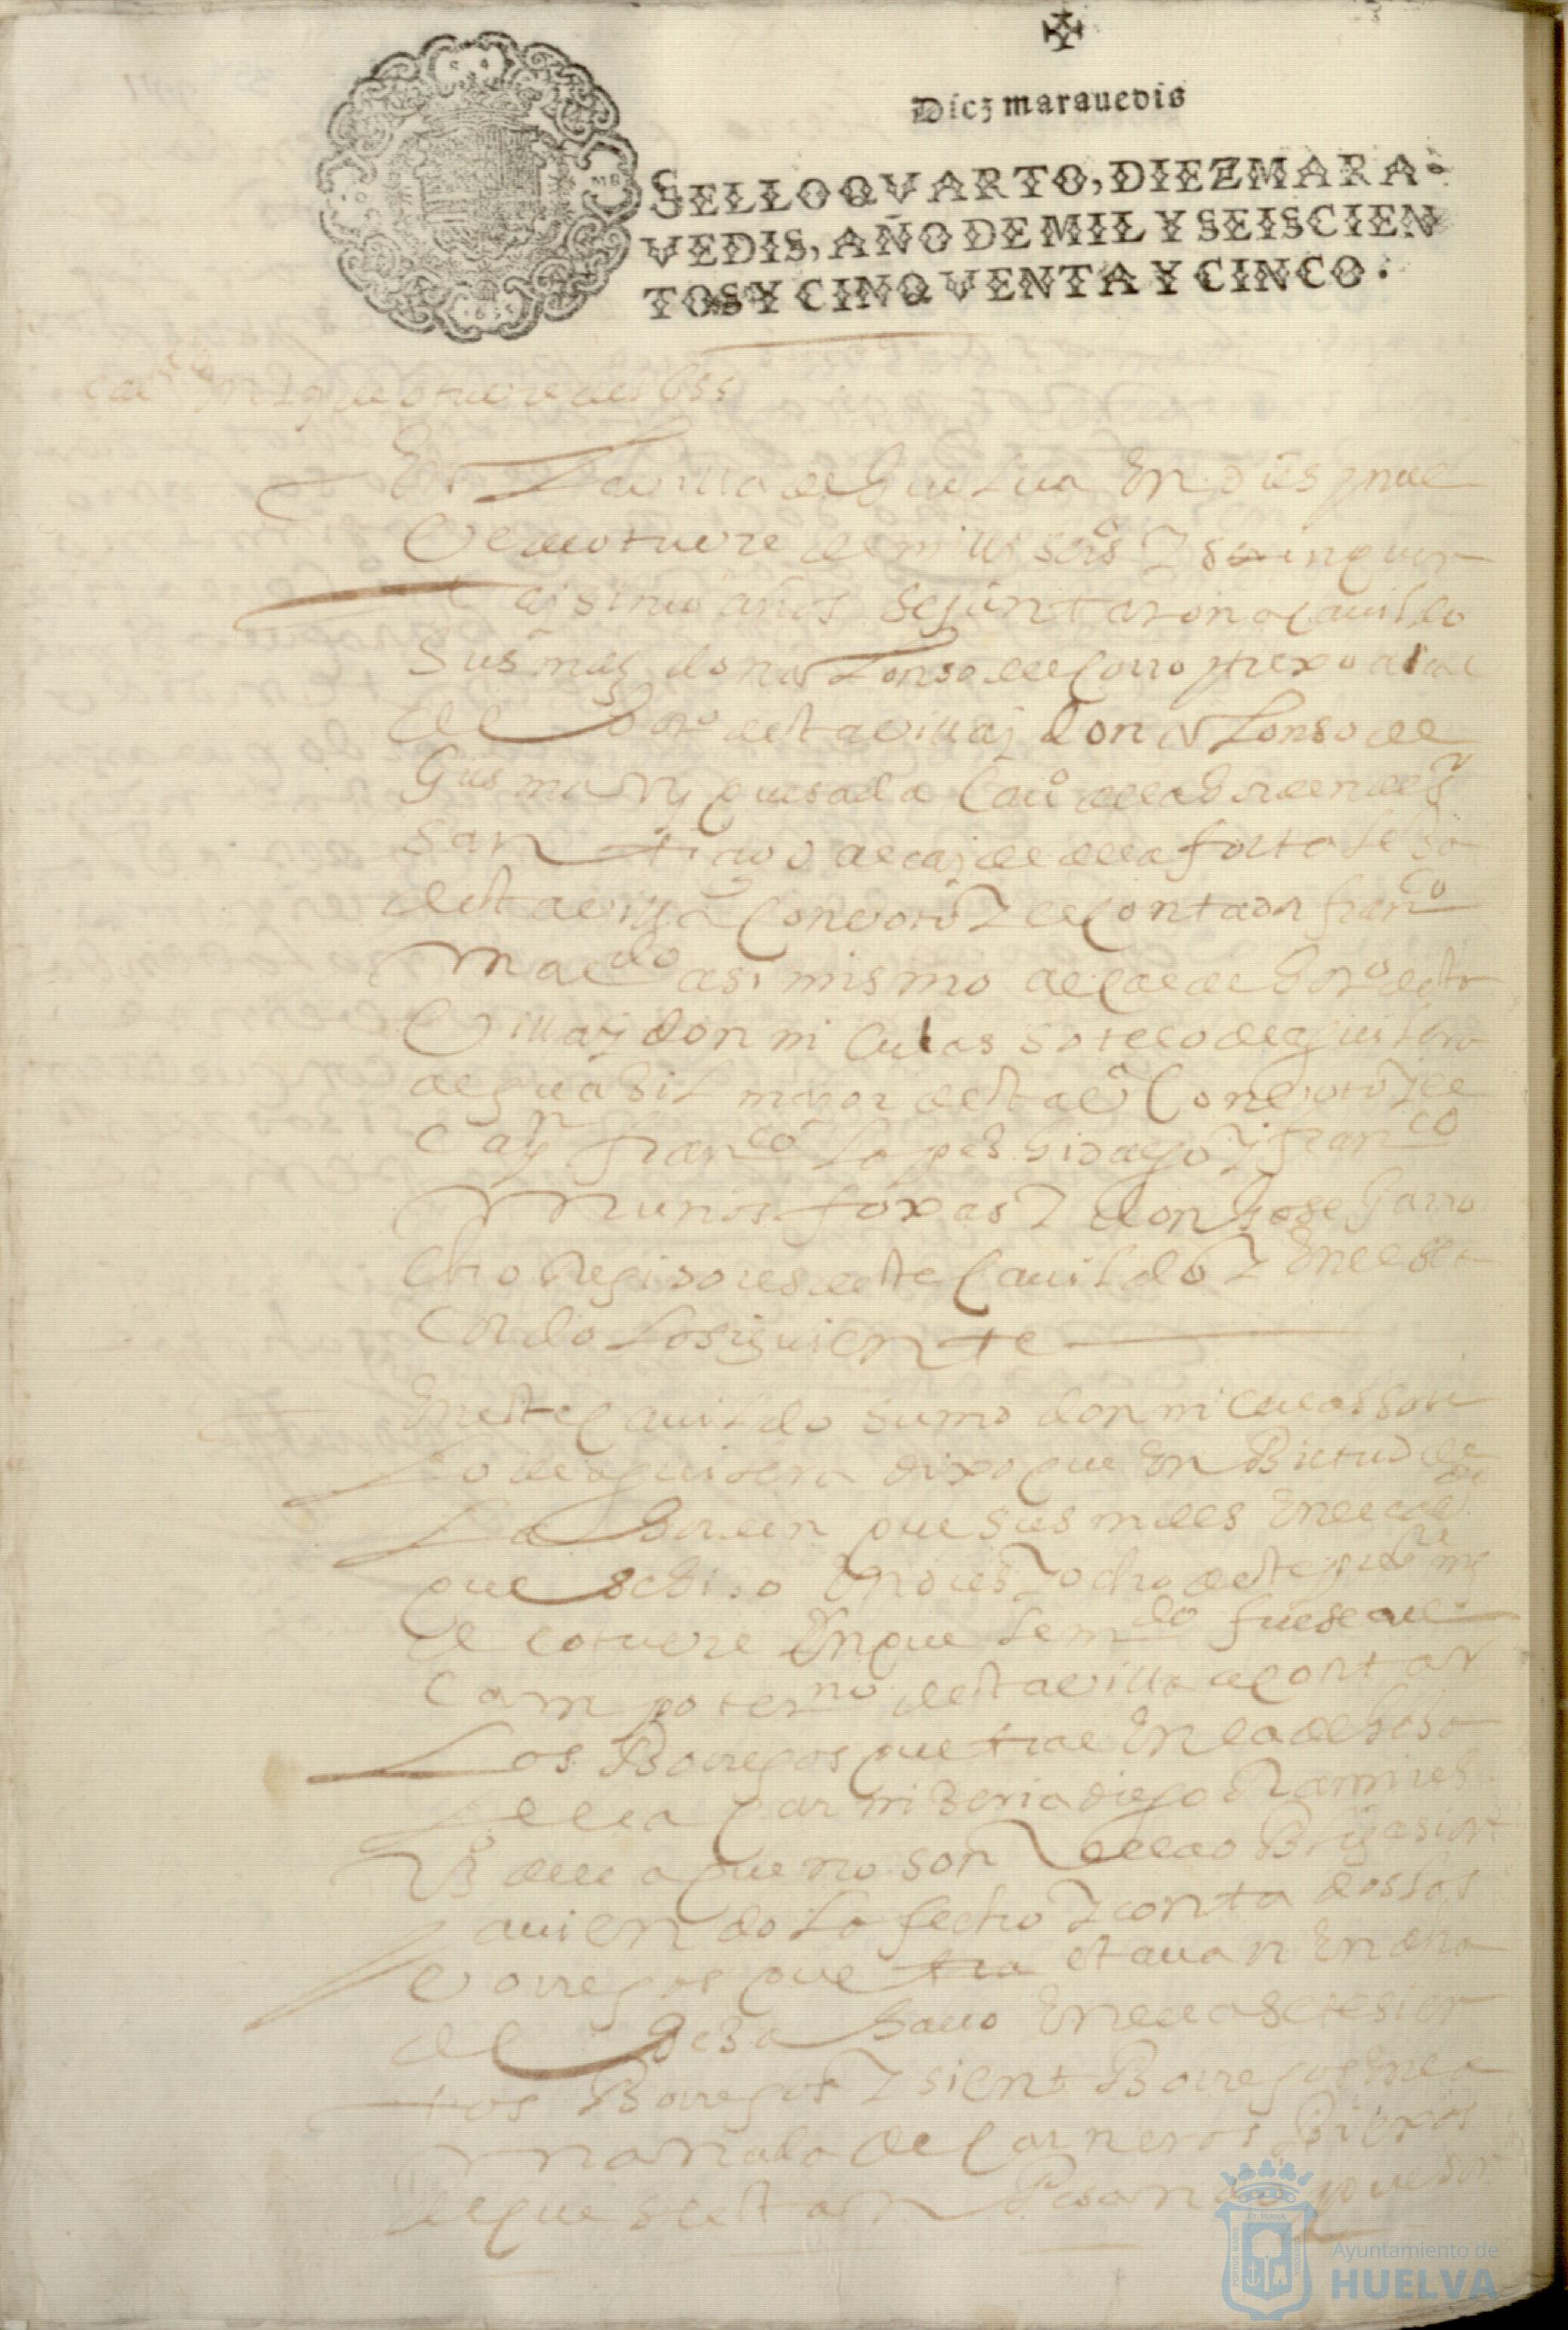 Diez marauedis
SELLO QVARTO, DIEZ MARA-
VEDIS, AÑO DE MIL Y SEISCIEN
TOS Y CINQVENTA Y CINCO.
otuvre de 1655
En La villa de Guelva En dies y nue
Ve de otuvre de mill seisos y sinquen
ta y sinco años se juntaron a cavildo
Sus mds don alonso de Corro
de Sorno desta villa y don alonso de
Gusman y quesada Cauo de la orden de
San tiago alcaide de la fortalesa
desta villa Con voto y el contador franco
Maldo asi mismo alcalde desta
Villa y don niculas sotelo de aguilera
alguasil mayor desta va Con voto y el
Capn franco Lopes hidalgo y franco
Munos foxas y don Jose Garro
cho Regidores deste Cavildo y En el se a
Cordo lo siguiente
En este Cavildo su md don niculas sote
lo de aguilera dixo que En Birtud de
La horden que sus mdes En el
que se hiso En dies y ocho deste
de otuvre En que le mdo fuese al
Campo terno desta villa a contar
Los Borregos que trae En la dehesa
de la Carniseria diego Ramires
della que no son
aviendo lo fecho y contado los
borregos que tra estavan En dha
dehesa hallo En ella setesien
tos Borregos y sient Borregos En la
manada de Carneros Biexos
de que se estan Pesando que son
Ayuntamiento de
HUELVA